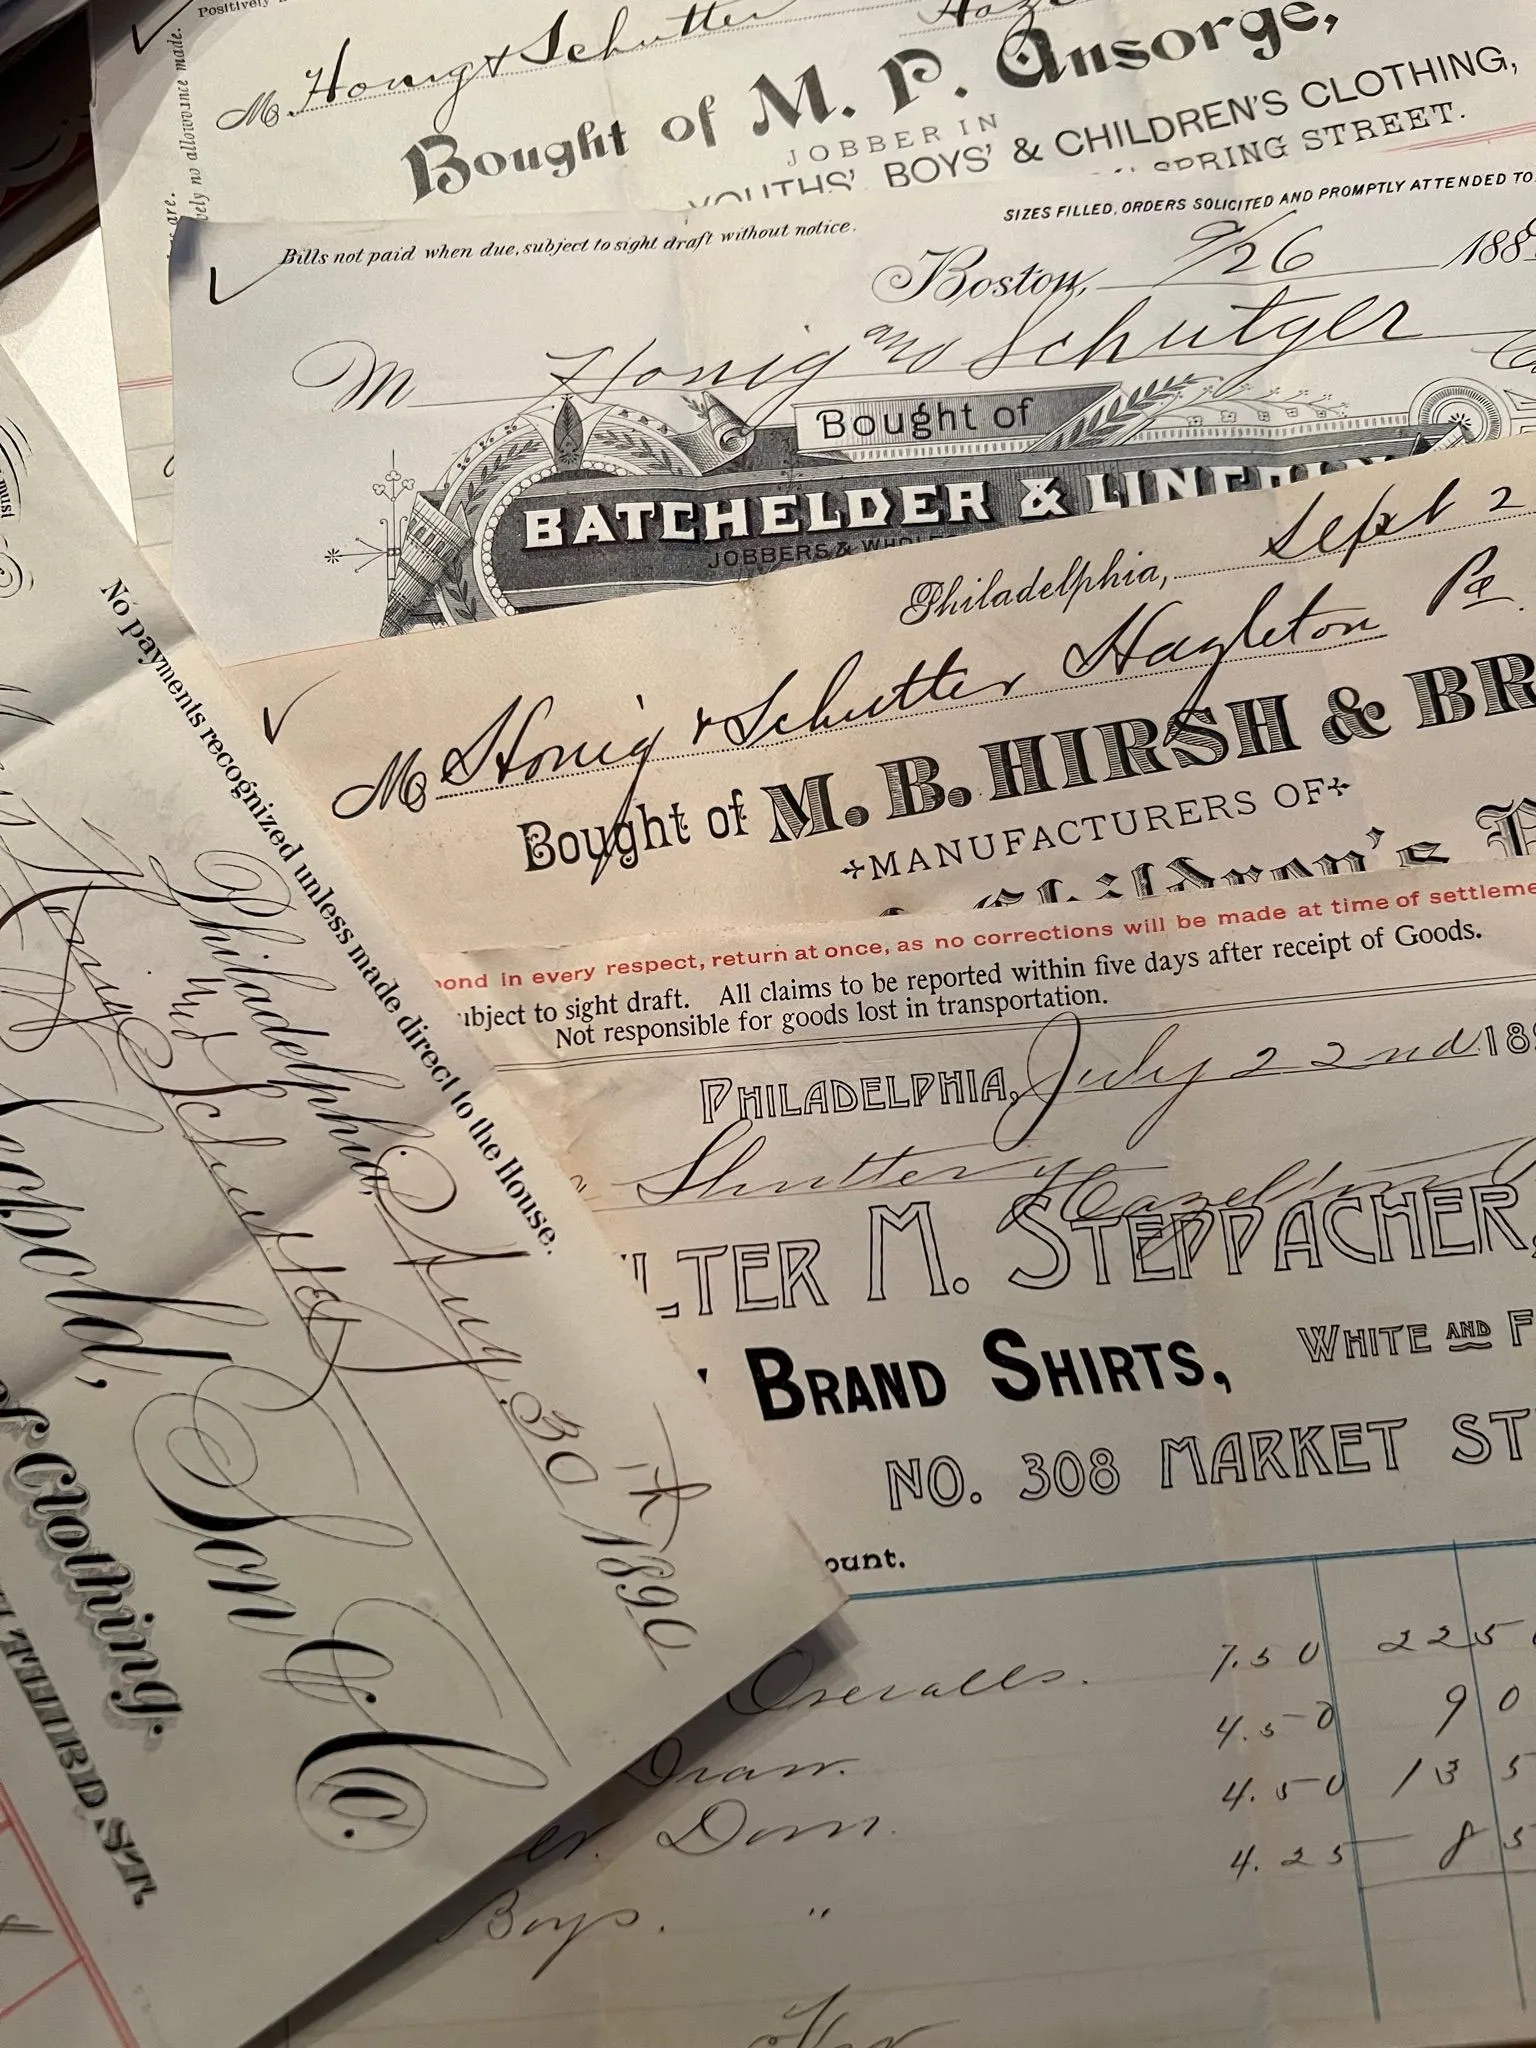 Positively
M. Honig & Schutter
Bought of M. P. Ansorge,
JOBBER IN
YOUTHS' BOYS' & CHILDREN'S CLOTHING,
SPRING STREET.
no allowance made.
are.
Bills not paid when due, subject to sight draft without notice.
SIZES FILLED, ORDERS SOLICITED AND PROMPTLY ATTENDED TO.
Boston, 9/26 188
M Honig and Schutger
Bought of
BATCHELDER & LINCOLN
JOBBERS &
Philadelphia, Sept 2
M Honig & Schutter Hazleton Pa
Bought of M. B. HIRSH & BR
MANUFACTURERS OF
Children's
in every respect, return at once, as no corrections will be made at time of settleme
ubject to sight draft. All claims to be reported within five days after receipt of Goods.
Not responsible for goods lost in transportation.
PHILADELPHIA, July 22nd 18
Shutter Hazelton
LTER M. STEPPACHER,
BRAND SHIRTS, WHITE AND F
NO. 308 MARKET ST
ount.
Overalls. 7.50 225
4.50 90
Dom. 4.50 135
Boys. " 4.25 85
must
No payments recognized unless made direct to the House.
Philadelphia, Aug. 30th 1890
Son & Co.
of Clothing.
THIRD ST.